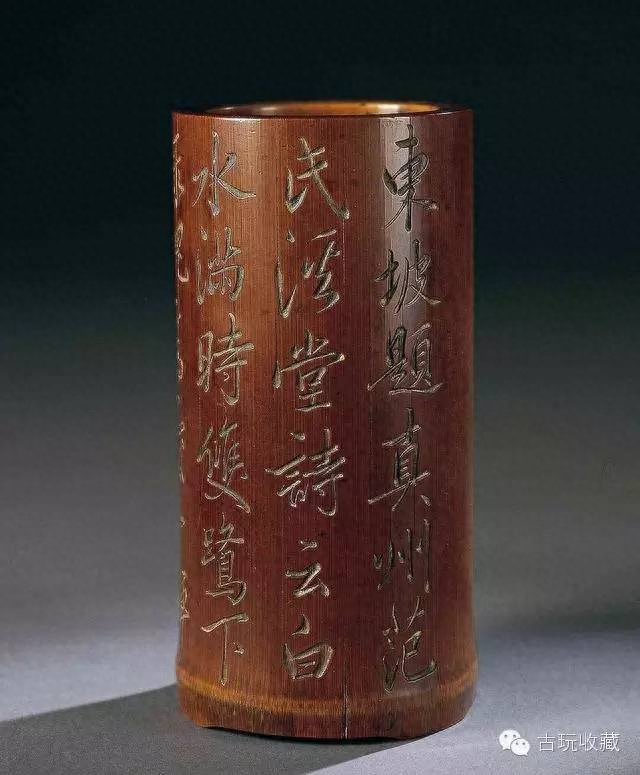 東坡題真州范
氏溪堂詩云白
水滿時雙鷺下
古玩收藏